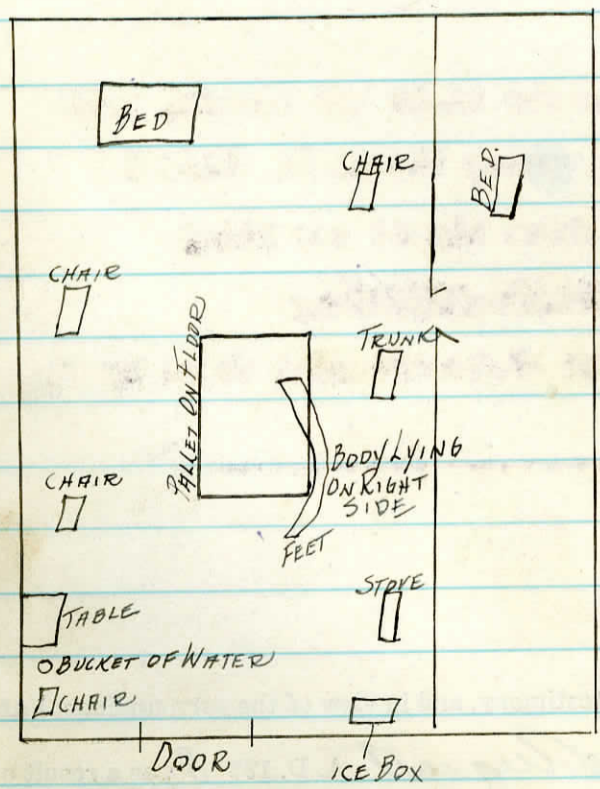 BED
CHAIR
BED.
CHAIR
PALLET ON FLOOR
TRUNK
BODY LYING
ON RIGHT
SIDE
CHAIR
FEET
STOVE
TABLE
BUCKET OF WATER
CHAIR
DOOR
ICE BOX